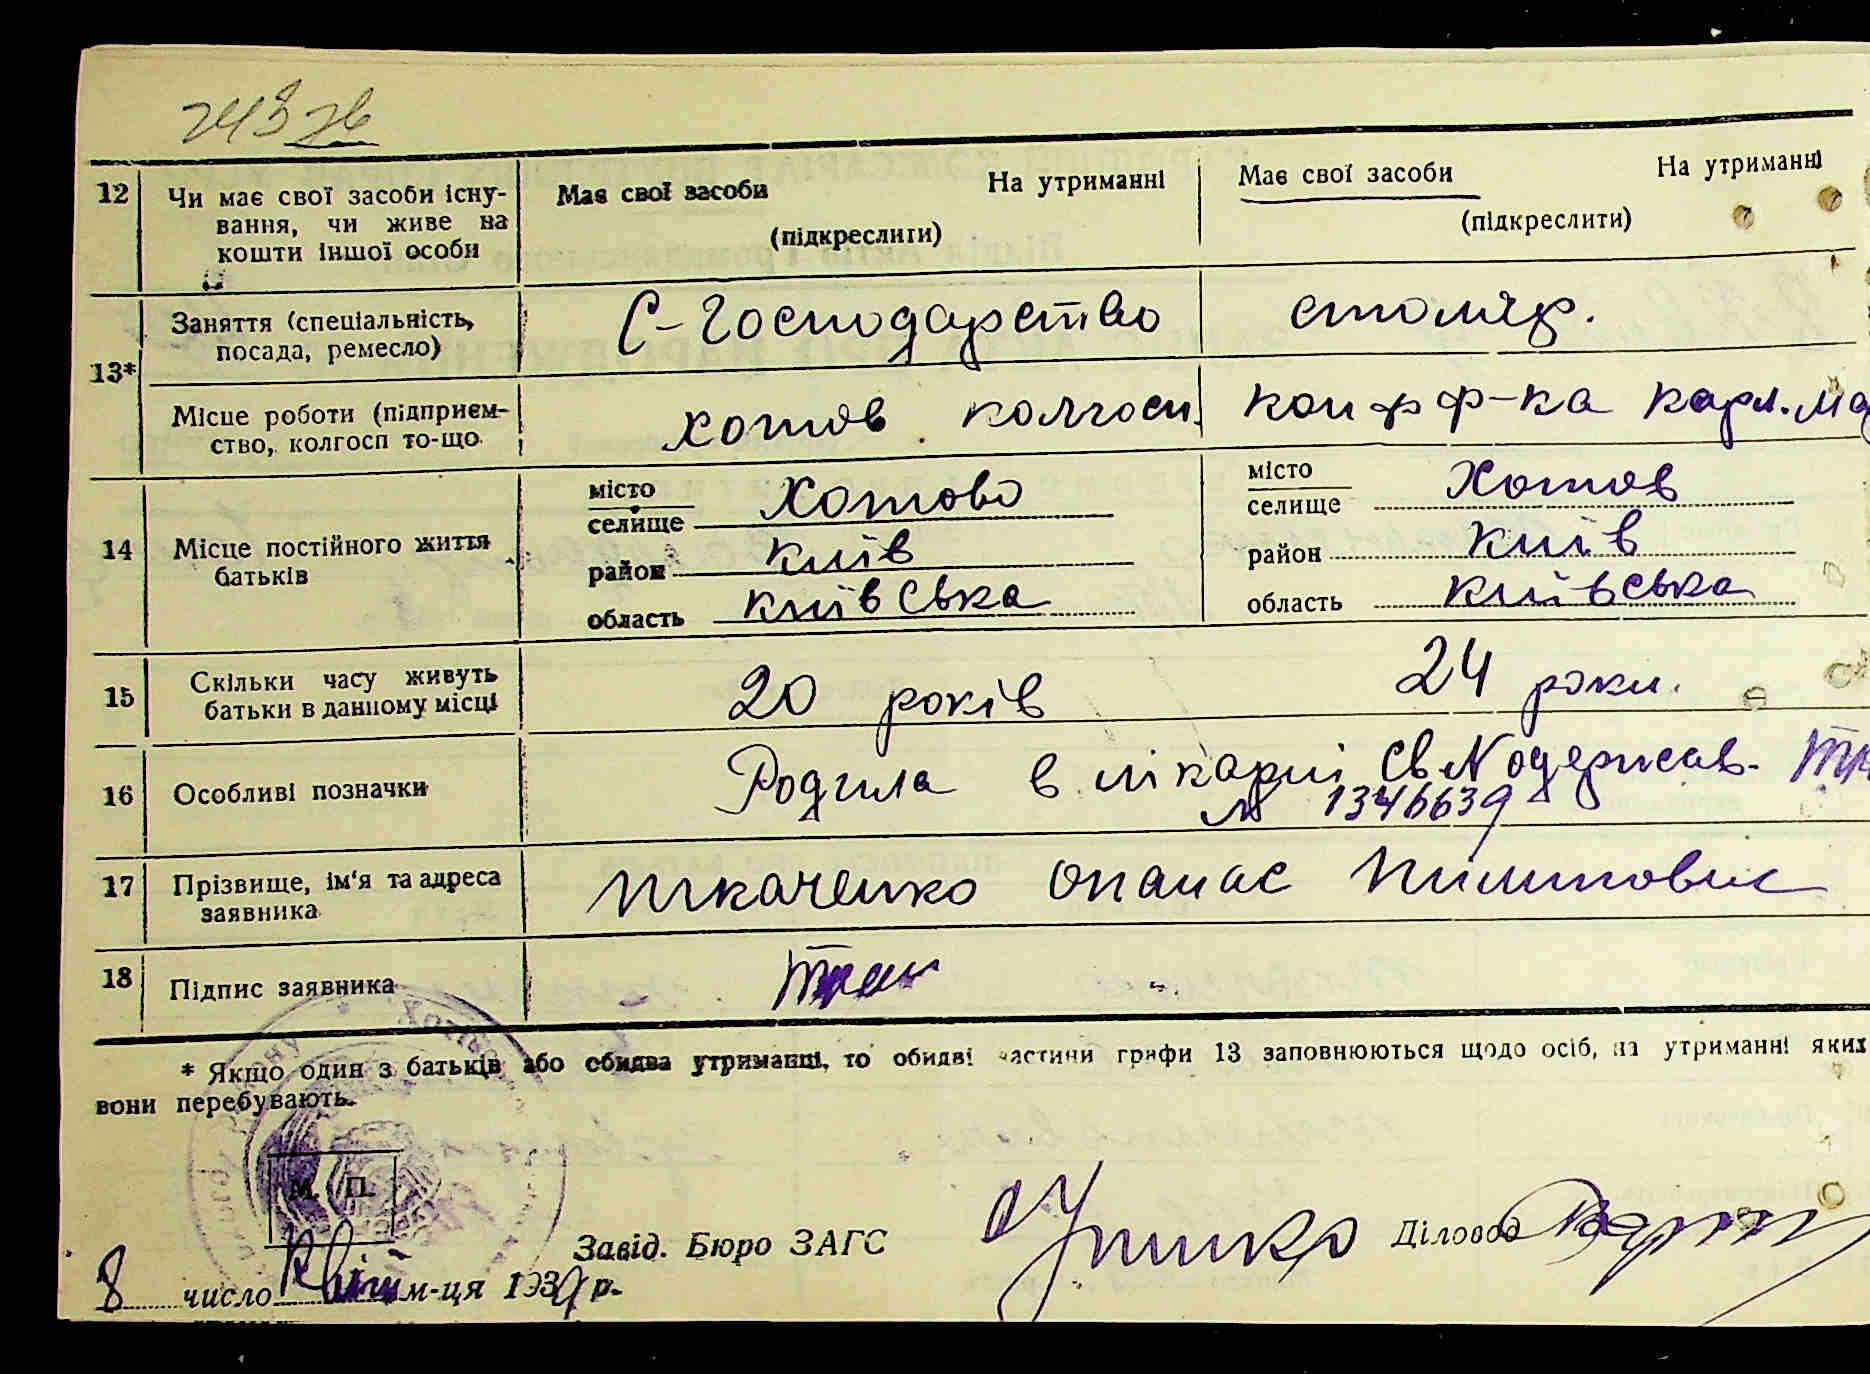 243 зв
12 Чи має свої засоби існу- Має свої засоби На утриманні Має свої засоби На утриманні
вання, чи живе на (підкреслити) (підкреслити)
кошти іншої особи
13* Заняття (спеціальність, С-Господарство столяр.
посада, ремесло)
Місце роботи (підприєм- хотов колгосп. конф ф-ка карл.ма
ство, колгосп то-що
14 Місце постійного життя батьків
місто Хотово місто Хотов
селище селище
район Київ район Київ
область київська область київська
15 Скільки часу живуть 20 років 24 роки.
батьки в данному місці
16 Особливі позначки Родила в лікарні, св N одержав-
№ 1346639
17 Прізвище, ім'я та адреса Ткаченко Опанас Пилипович
заявника
18 Підпис заявника Ткач
* Якщо один з батьків або обидва утриманці, то обидві частини графи 13 заповнюються щодо осіб, на утриманні яких
вони перебувають.
М. П.
Завід. Бюро ЗАГС Діловод
8 число Квіт м-ця 1939 р.